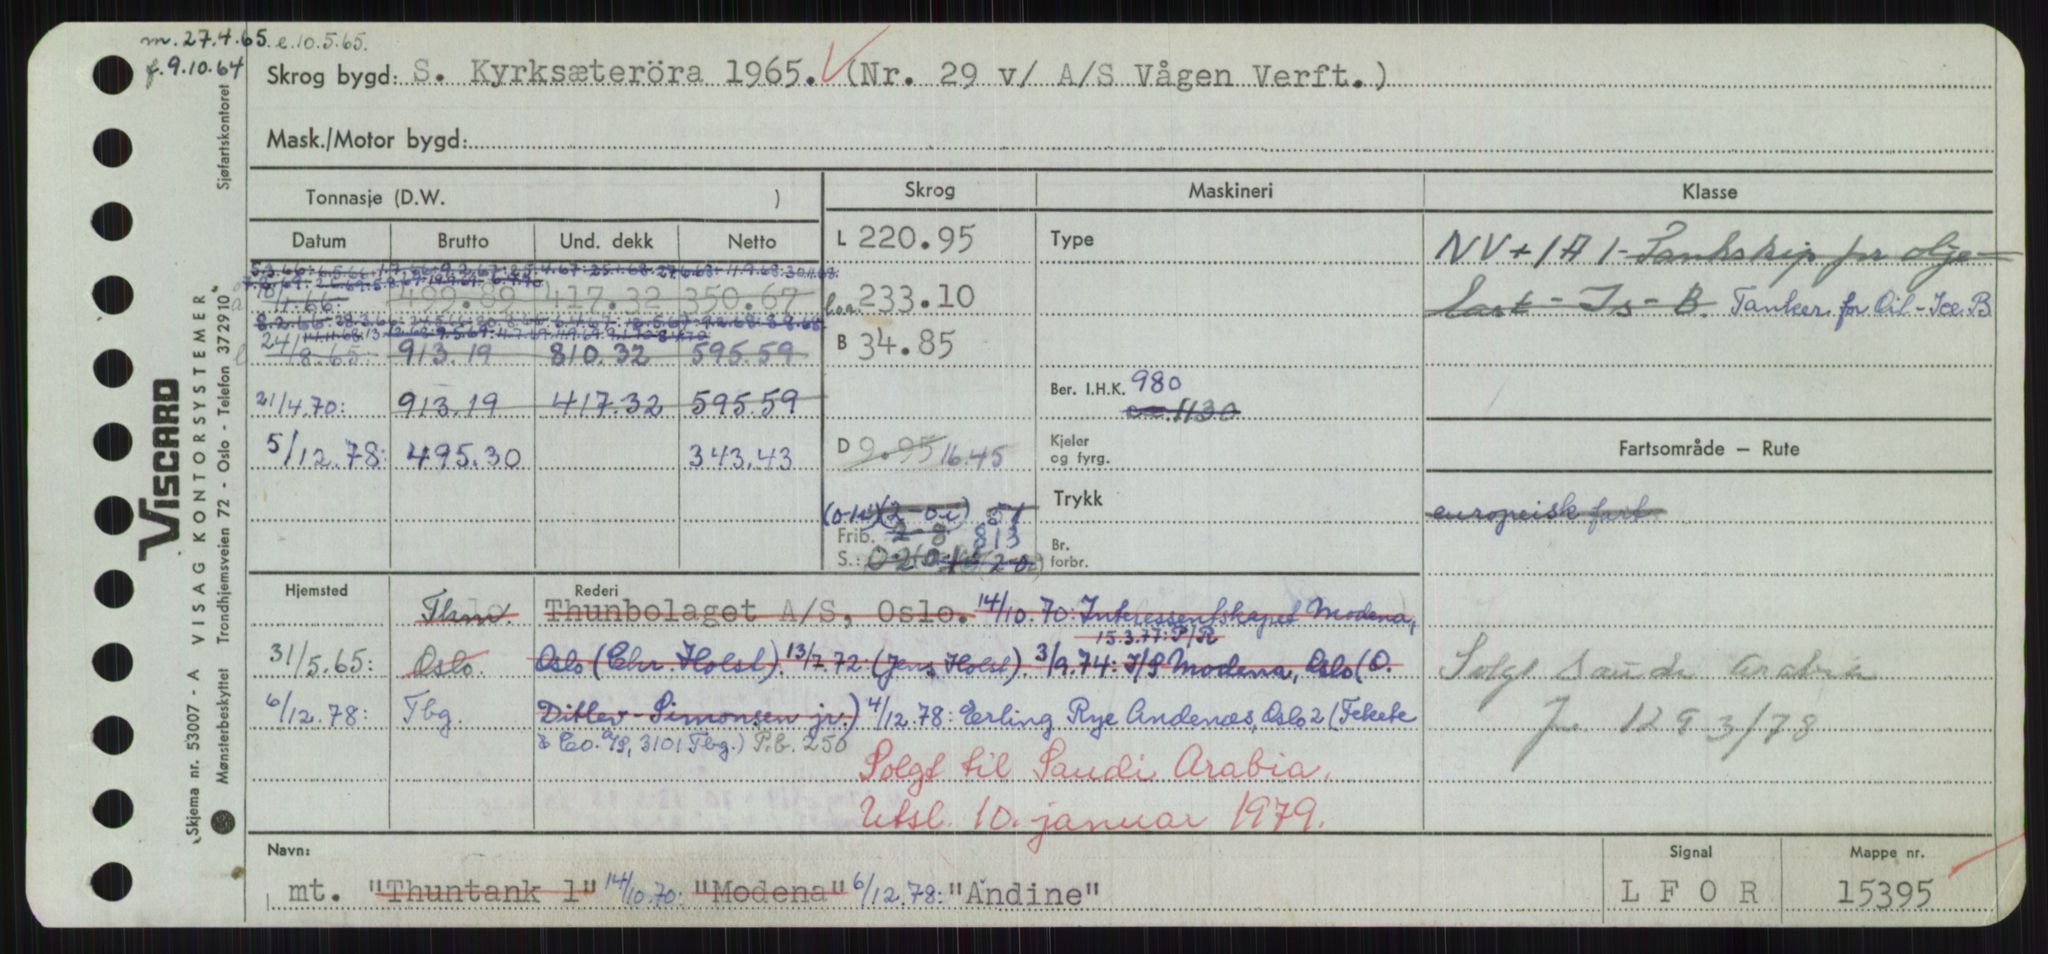 m. 27.4.65. e. 10.5.65.
f. 9.10.64
Skrog bygd: S. Kyrksæteröra 1965. (Nr. 29 v/ A/S Vågen Verft.)
Mask./Motor bygd:
Tonnasje (D.W. )
Skrog
Maskineri
Klasse
Datum Brutto Und. dekk Netto
L 220.95
Type
NV + 1A1 - Tankskip for olje-
499.89 417.32 350.67
loa. 233.10
last - Is - B. Tanker for Oil - Ice B
24/8.65: 913.19 810.32 595.59
B 34.85
21/4.70: 913.19 417.32 595.59
Ber. I.H.K. 980
1130
5/12.78: 495.30 343.43
D 9.95 16.45
Kjeler og fyrg.
Fartsområde – Rute
Trykk
europeisk fart
Frib. 2-8 813
S.:
Br. forbr.
Hjemsted
Rederi
Thm. Thunbolaget A/S, Oslo. 14/10.70: Interessentskapet Modena,
15.3.77: P/R
31/5.65: Oslo. Oslo (Chr. Holst). 13/7.72: (Jens Holst). 3/9.74: I/S Modena, Oslo (O.
Solgt Saudi Arabia
6/12.78: Tbg. Ditlev-Simonsen jr.) 4/12.78: Erling Rye Andenæs, Oslo 2 (Fekete
& Co. A/S, 3101 Tbg.) P.b. 250
1293/78
Solgt til Saudi Arabia.
Utsl. 10. januar 1979.
Navn:
mt. "Thuntank 1" 14/10.70: "Modena" 6/12.78: "Andine"
Signal
L F O R
Mappe nr.
15395
VISCARD
VISAG KONTORSYSTEMER
Skjema nr. 53007 - A
Mønsterbeskyttet Trondhjemsveien 72 - Oslo - Telefon 372910
Sjøfartskontoret